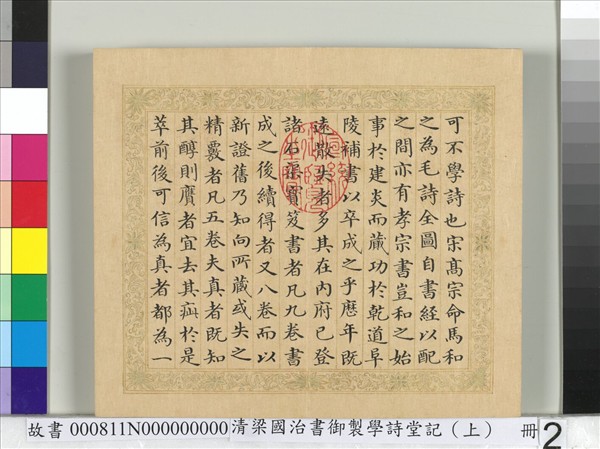 可不學詩也宋髙宗命馬和
之為毛詩全圖自書經以配
之間亦有孝宗書豈和之始
事於建炎而蕆功於乾道阜
陵補書以卒成之乎歴年既
遠散失者多其在內府已登
諸石渠寶笈書者凡九卷書
成之後續得者又八卷而以
新證舊乃知向所藏或失之
精覈者凡五卷夫真者既知
其醇則贗者宜去其疵於是
萃前後可信為真者都為一
故書 000811N000000000 清梁國治書御製學詩堂記（上） 冊 2